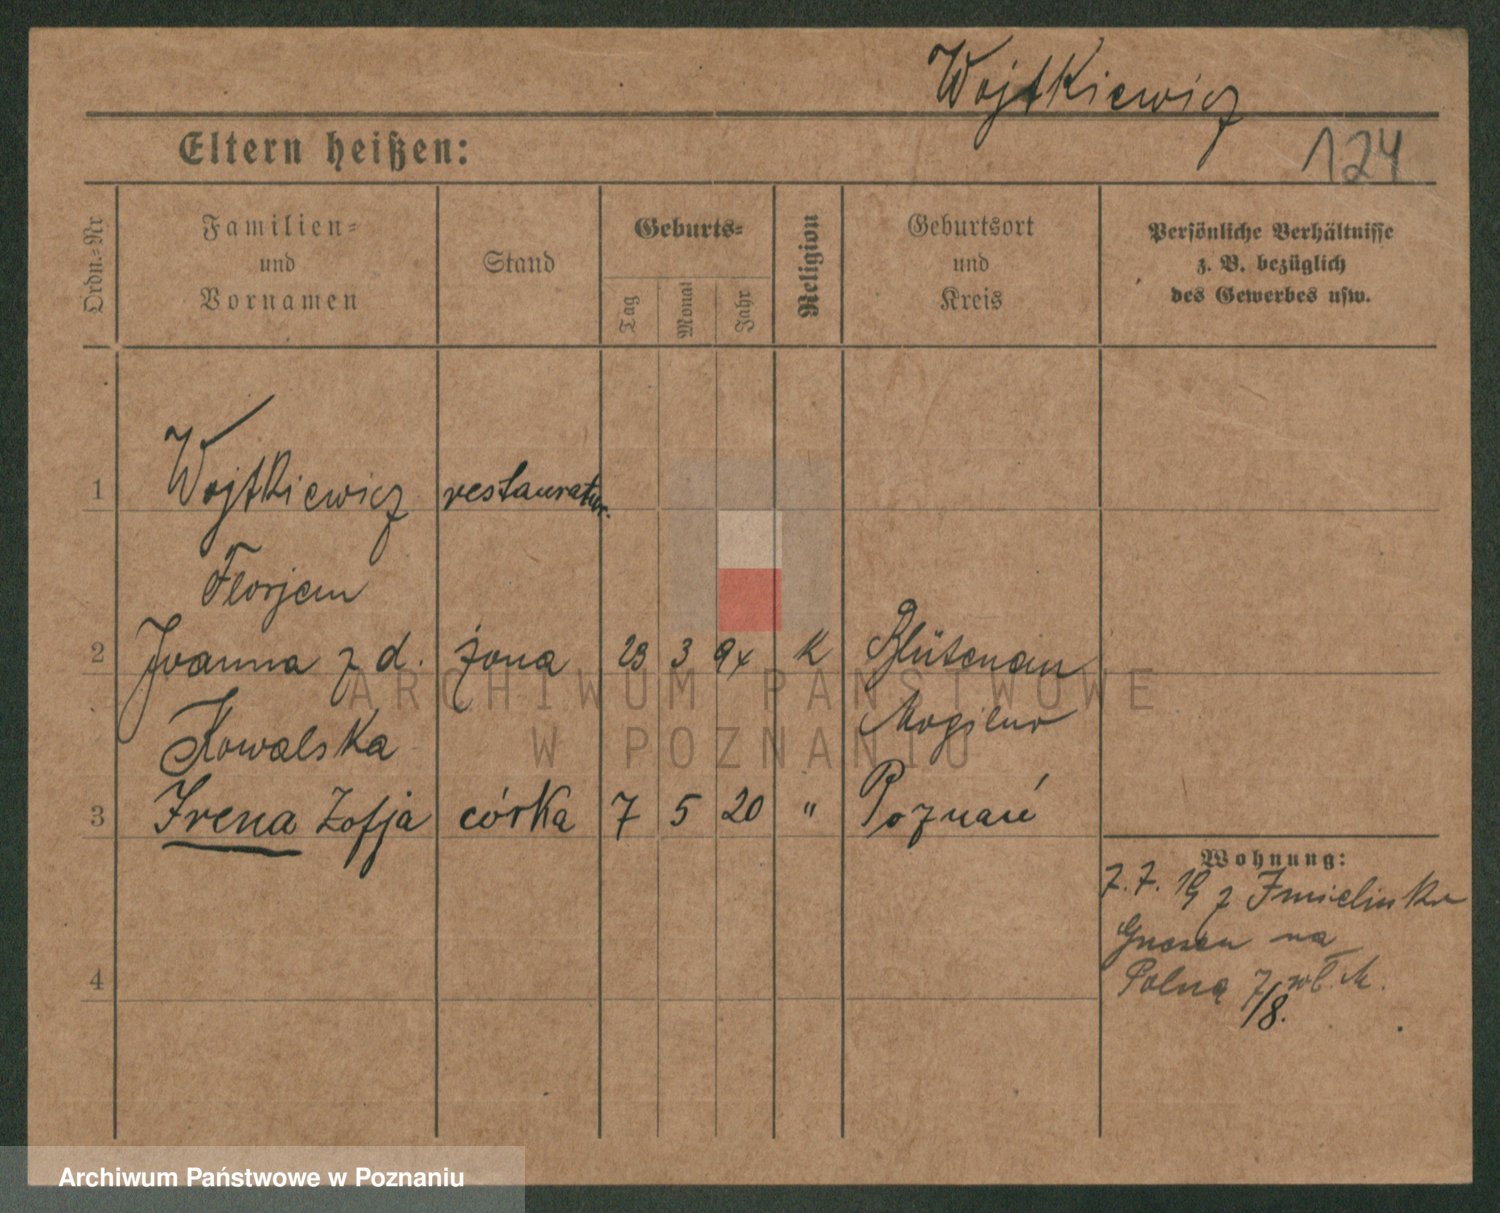 Wojtkiewicz
124
Eltern heißen:
Ordn.-Nr
Familien-
und
Vornamen
Stand
Geburts-
Tag
Monat
Jahr
Religion
Geburtsort
und
Kreis
Persönliche Verhältnisse
z. B. bezüglich
des Gewerbes usw.
1 Wojtkiewicz restauratur.
Florjan
2 Joanna z d. żona 23 3 94 K
Kowalska Mogilno
3 Irena Zofja córka 7 5 20 " Poznań
Wohnung:
7.7.19 z
Gnesen na
Polną 7 wł. M.
/8.
4
ARCHIWUM PAŃSTWOWE
W POZNANIU
Archiwum Państwowe w Poznaniu